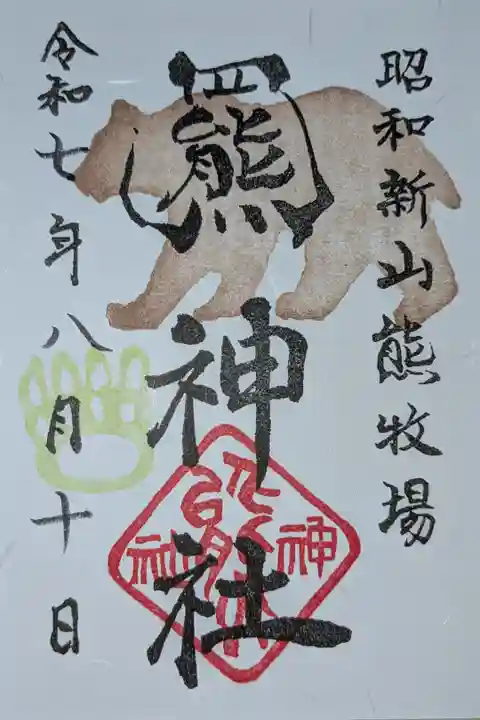 昭和新山熊牧場
羆神社
令和七年八月十日
神社